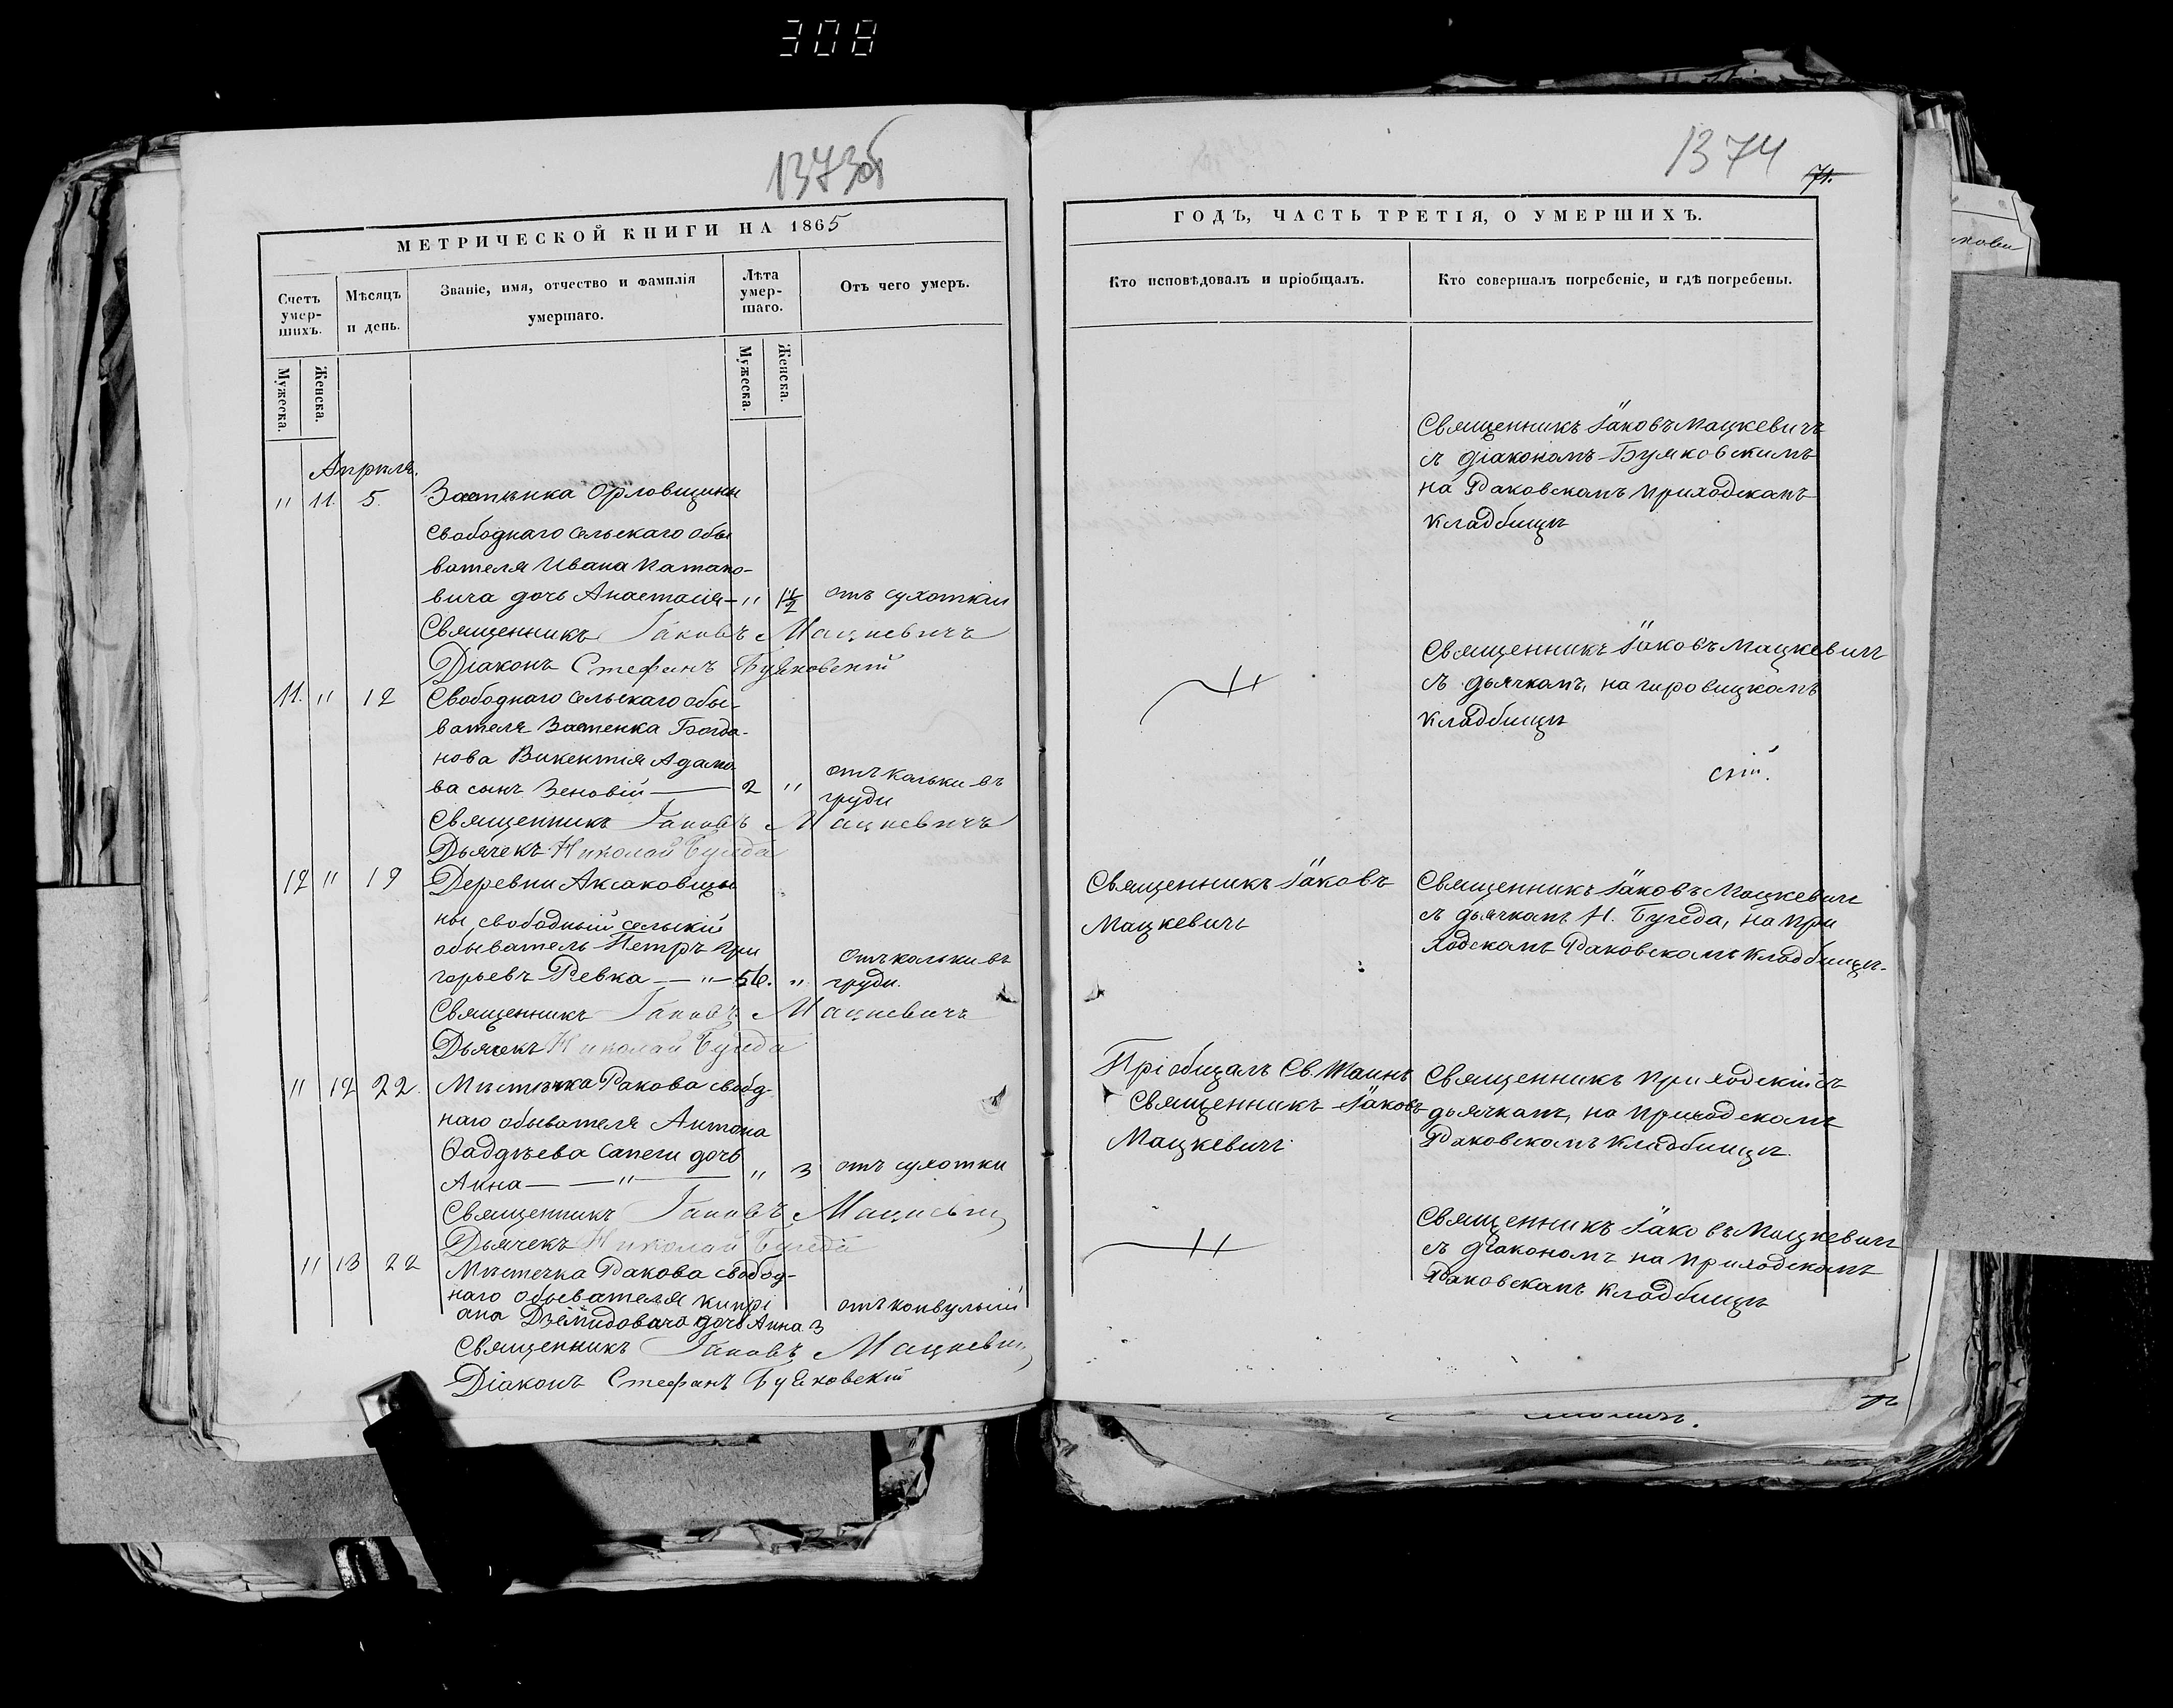 308
1373об
МЕТРИЧЕСКОЙ КНИГИ НА 1865
Счетъ умер-шихъ.
Мѣсяцъ и день.
Званіе, имя, отчество и фамилія умершаго.
Лѣта умер-шаго.
Отъ чего умеръ.
Мужеска. Женска.
Мужеска. Женска.
Апрѣль.
" 11. 5. Застѣнка Орловщины
свободнаго сельскаго обы
вателя Ивана
вича дочь Анастасія - " 1 1/2 отъ сухотки
Священникъ Іаковъ Мацкевичъ
Діаконъ Стефанъ
11. " 12 Свободнаго сельскаго обы-
вателя Застенка Богда-
нова Викентія Адамо
ва сынъ Зеновій — 2 " отъ кольки въ
груди
Священникъ Іаковъ Мацкевичъ
Дьячекъ Николай
12 " 19 Деревни Аксаковщи
ны, свободный сельскій
обыватель Петръ Гри
горьевъ Ревка — " — 56. " отъ кольки въ
груди.
Священникъ Іаковъ Мацкевичъ
Дьячекъ Николай
" 12 22. Мѣстечка Ракова свобод
наго обывателя Антона
Фаддѣева Сапеги дочь
Анна — — " — " 3 отъ сухотки
Священникъ Іаковъ Мацкевич
Дьячекъ Николай
" 13 22 Мѣстечка Ракова свобод-
наго обывателя Кипрі
ана дочь Анна 3 отъ конвульсій
Священникъ Іаковъ Мацкевич
Діаконъ Стефанъ
1374
71.
ГОДЪ, ЧАСТЬ ТРЕТІЯ, О УМЕРШИХЪ.
Кто исповѣдовалъ и пріобщалъ.
Кто совершалъ погребеніе, и гдѣ погребены.
Священникъ Іаковъ Мацкевичъ
съ діакономъ
на Раковскомъ приходскомъ
кладбищѣ
Священникъ Іаковъ Мацкевич
съ дьячкомъ, на
кладбищѣ
Священникъ Іаковъ
Мацкевичъ
Священникъ Іаковъ Мацкевич
съ дьячкомъ Н. на при
ходскомъ Раковскомъ кладбищѣ.
Пріобщалъ Св. Таинъ
Священникъ Іаковъ
Мацкевичъ
Священникъ приходскій съ
дьячкомъ, на приходскомъ
Раковскомъ кладбищѣ.
Священникъ Іаковъ Мацкевич
съ діакономъ на приходскомъ
Раковскомъ кладбищѣ